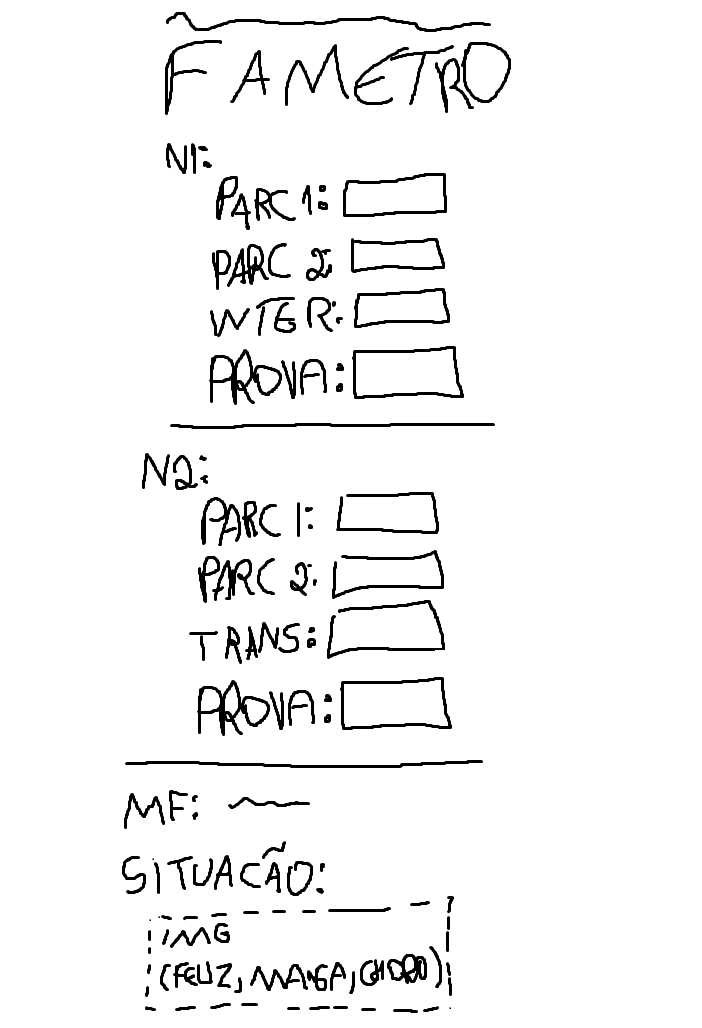 FAMETRO
N1:
PARC 1:
PARC 2:
INTER:
PROVA:
N2:
PARC 1:
PARC 2:
TRANS:
PROVA:
MF:
SITUACÃO:
IMG
(FELIZ, MANGA, CHORO)